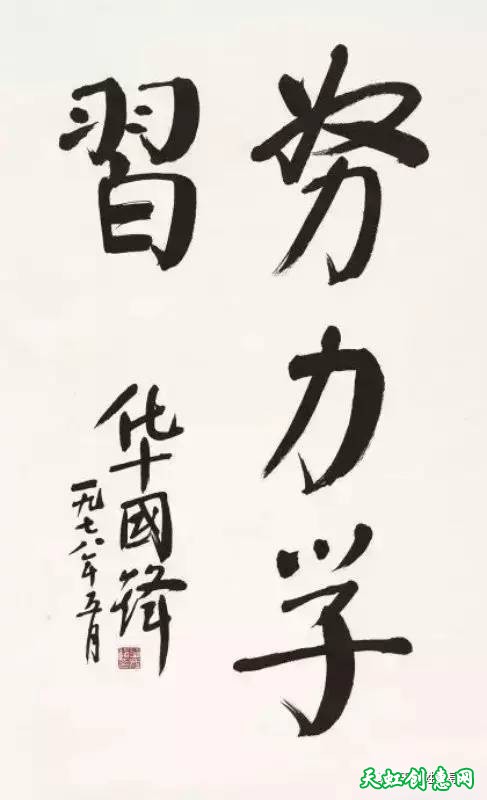 努力学
習
华國锋
一九七八年五月
天虹创意网